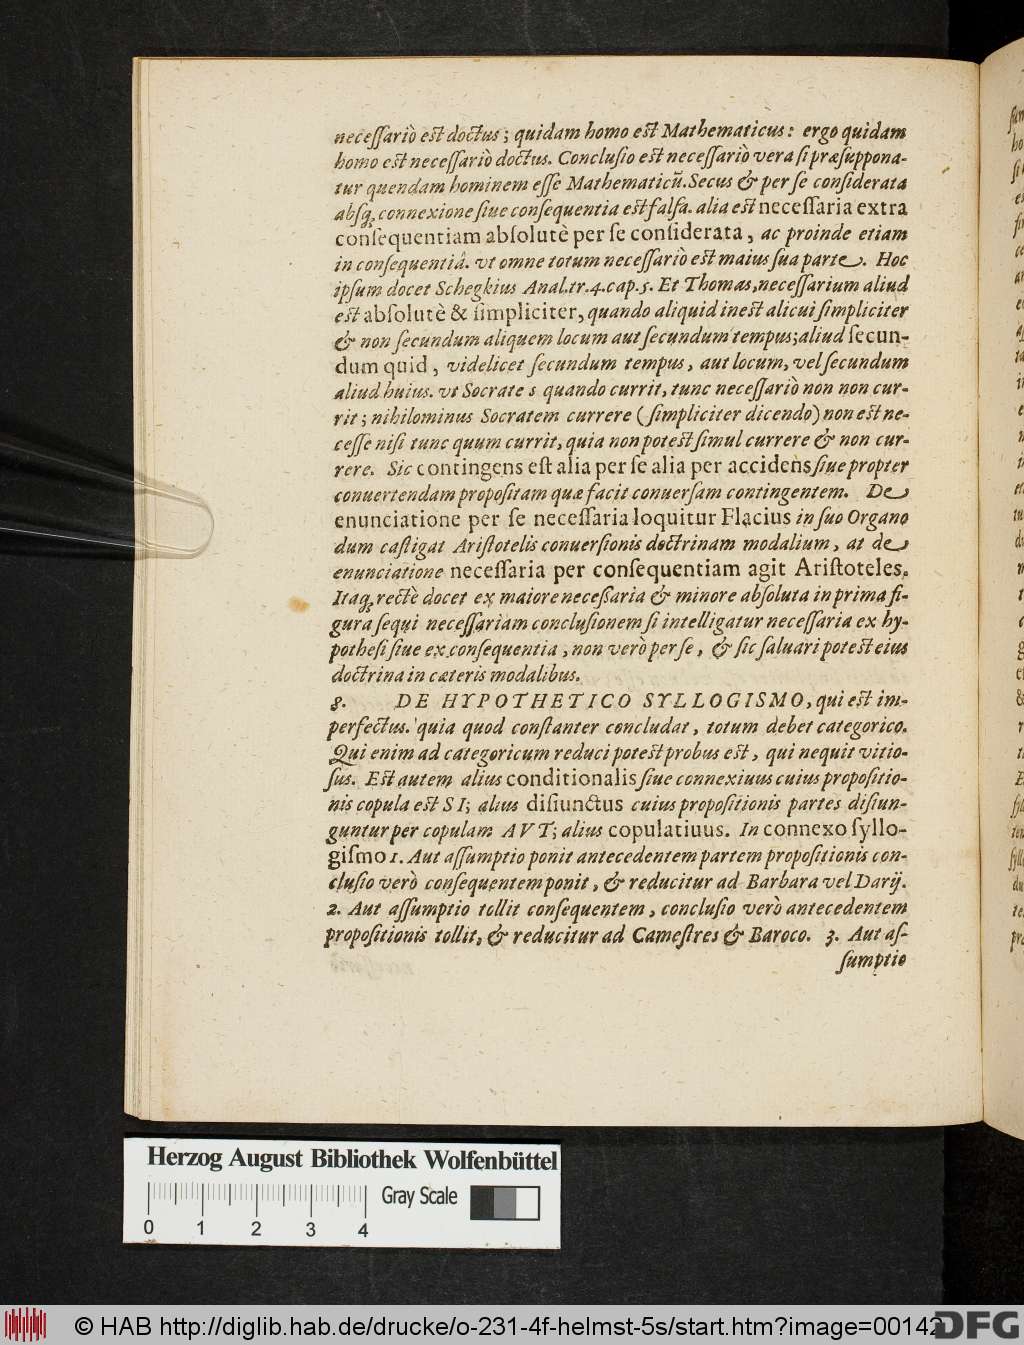 neceſſariò eſt doctus; quidam homo eſt Mathematicus: ergo quidam
homo eſt neceſſariò doctus. Concluſio eſt neceſſariò vera ſi præſuppona-
tur quendam hominem eſſe Mathematicũ. Secus & per ſe conſiderata
abſq; connexione ſiue conſequentia eſt falſa. alia eſt neceſſaria extra
conſequentiam abſolutè per ſe conſiderata, ac proinde etiam
in conſequentiâ. vt omne totum neceſſariò eſt maius ſua parte. Hoc
ipſum docet Schegkius Anal. tr. 4. cap. 5. Et Thomas, neceſſarium aliud
eſt abſolutè & ſimpliciter, quando aliquid ineſt alicui ſimpliciter
& non ſecundum aliquem locum aut ſecundum tempus; aliud ſecun-
dum quid, videlicet ſecundum tempus, aut locum, vel ſecundum
aliud huius. vt Socrates quando currit, tunc neceſſariò non non cur-
rit; nihilominus Socratem currere (ſimpliciter dicendo) non eſt ne-
ceſſe niſi tunc quum currit, quia non poteſt ſimul currere & non cur-
rere. Sic contingens eſt alia per ſe alia per accidens ſiue propter
conuertendam propoſitam quæ facit conuerſam contingentem. De
enunciatione per ſe neceſſaria loquitur Flacius in ſuo Organo
dum caſtigat Ariſtotelis conuerſionis doctrinam modalium, at de
enunciatione neceſſaria per conſequentiam agit Ariſtoteles.
Itaq; rectè docet ex maiore neceßaria & minore abſoluta in prima fi-
gura ſequi neceſſariam concluſionem ſi intelligatur neceſſaria ex hy-
potheſi ſiue ex conſequentia, non verò per ſe, & ſic ſaluari poteſt eius
doctrina in cæteris modalibus.
8. DE HYPOTHETICO SYLLOGISMO, qui eſt im-
perfectus. quia quod conſtanter concludat, totum debet categorico.
Qui enim ad categoricum reduci poteſt probus eſt, qui nequit vitio-
ſus. Eſt autem alius conditionalis ſiue connexiuus cuius propoſitio-
nis copula eſt SI; alius diſiunctus cuius propoſitionis partes diſiun-
guntur per copulam AVT; alius copulatiuus. In connexo ſyllo-
giſmo 1. Aut aſſumptio ponit antecedentem partem propoſitionis con-
cluſio verò conſequentem ponit, & reducitur ad Barbara vel Darij.
2. Aut aſſumptio tollit conſequentem, concluſio verò antecedentem
propoſitionis tollit, & reducitur ad Cameſtres & Baroco. 3. Aut aſ-
ſumptio
Herzog August Bibliothek Wolfenbüttel
Gray Scale
0 1 2 3 4
© HAB http://diglib.hab.de/drucke/o-231-4f-helmst-5s/start.htm?image=00142
DFG